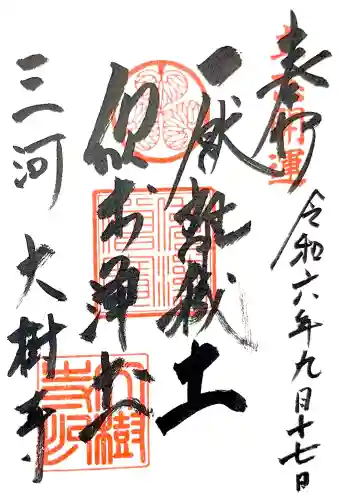 奉拝
開運
令和六年九月十七日
厭離穢土
欣求浄土
三河 大樹寺
大樹
寺印